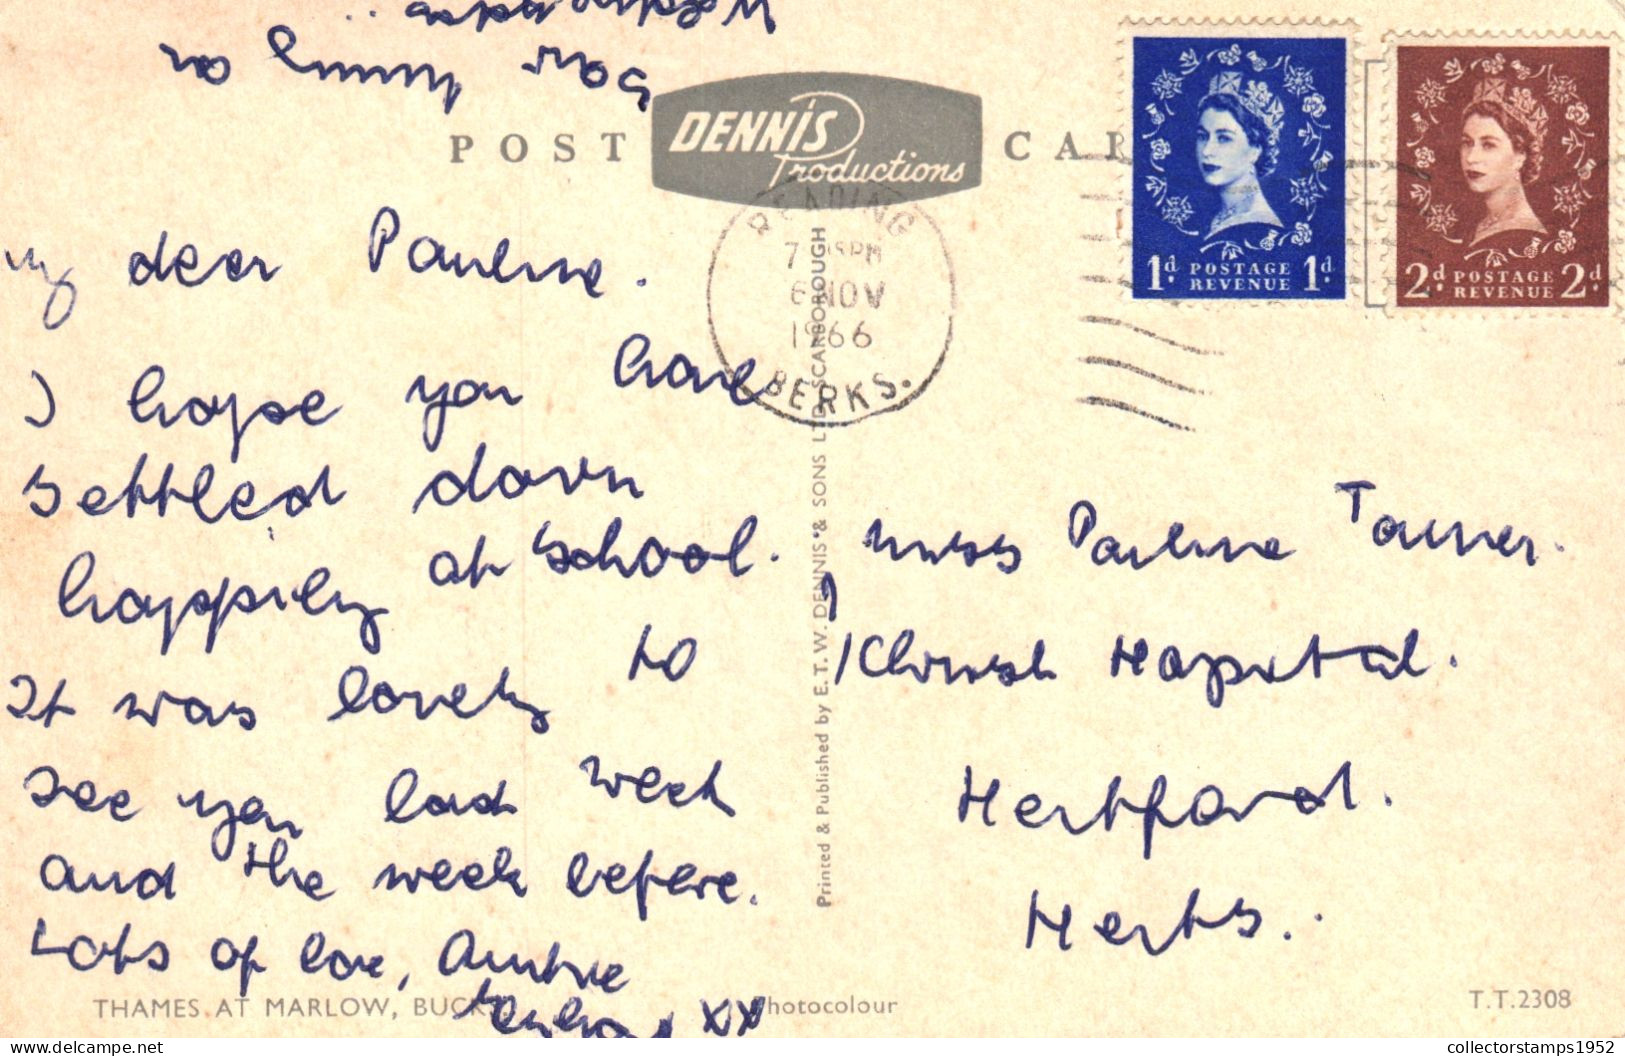 POST CAR
DENNIS
Productions
READING
6 NOV
1966
BERKS.
1d POSTAGE 1d
REVENUE
2d POSTAGE 2d
REVENUE
my dear Pauline.
I hope you have
settled down
happily at school.
It was lovely to
see you last week
and the week before.
Lots of love, Auntie
XX
Miss Pauline
Hospital.
Hertford.
Herts.
Printed & Published by E. T. W. DENNIS & SONS LTD. SCARBOROUGH
THAMES AT MARLOW, BUCKS
Photocolour
T.T.2308
collectorstamps1952